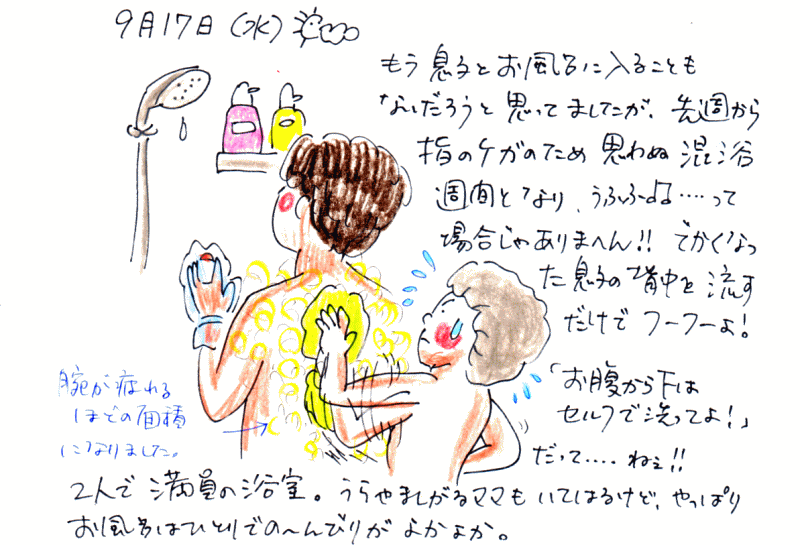 9月17日(水)
もう息子とお風呂に入ることも
ないだろうと思ってましたが、先週から
指のケガのため思わぬ混浴
週間となり、うふふ♫‥‥って
場合じゃありまへん!!でかくなっ
た息子の背中を流す
だけでフーフーよ!
「お腹から下は
セルフで洗ってよ!」
だって‥‥ねぇ!!
腕が疲れる
ほどの面積
になりました。
2人で満員の浴室。うらやましがるママもいてはるけど、やっぱり
お風呂はひとりでの〜んびりがよかよか。